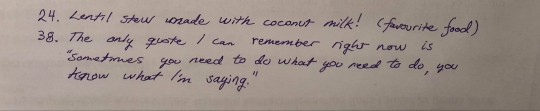 24. Lentil stew made with coconut milk! (favourite food)
38. The only quote I can remember right now is
"Sometimes you need to do what you need to do, you
know what I'm saying."